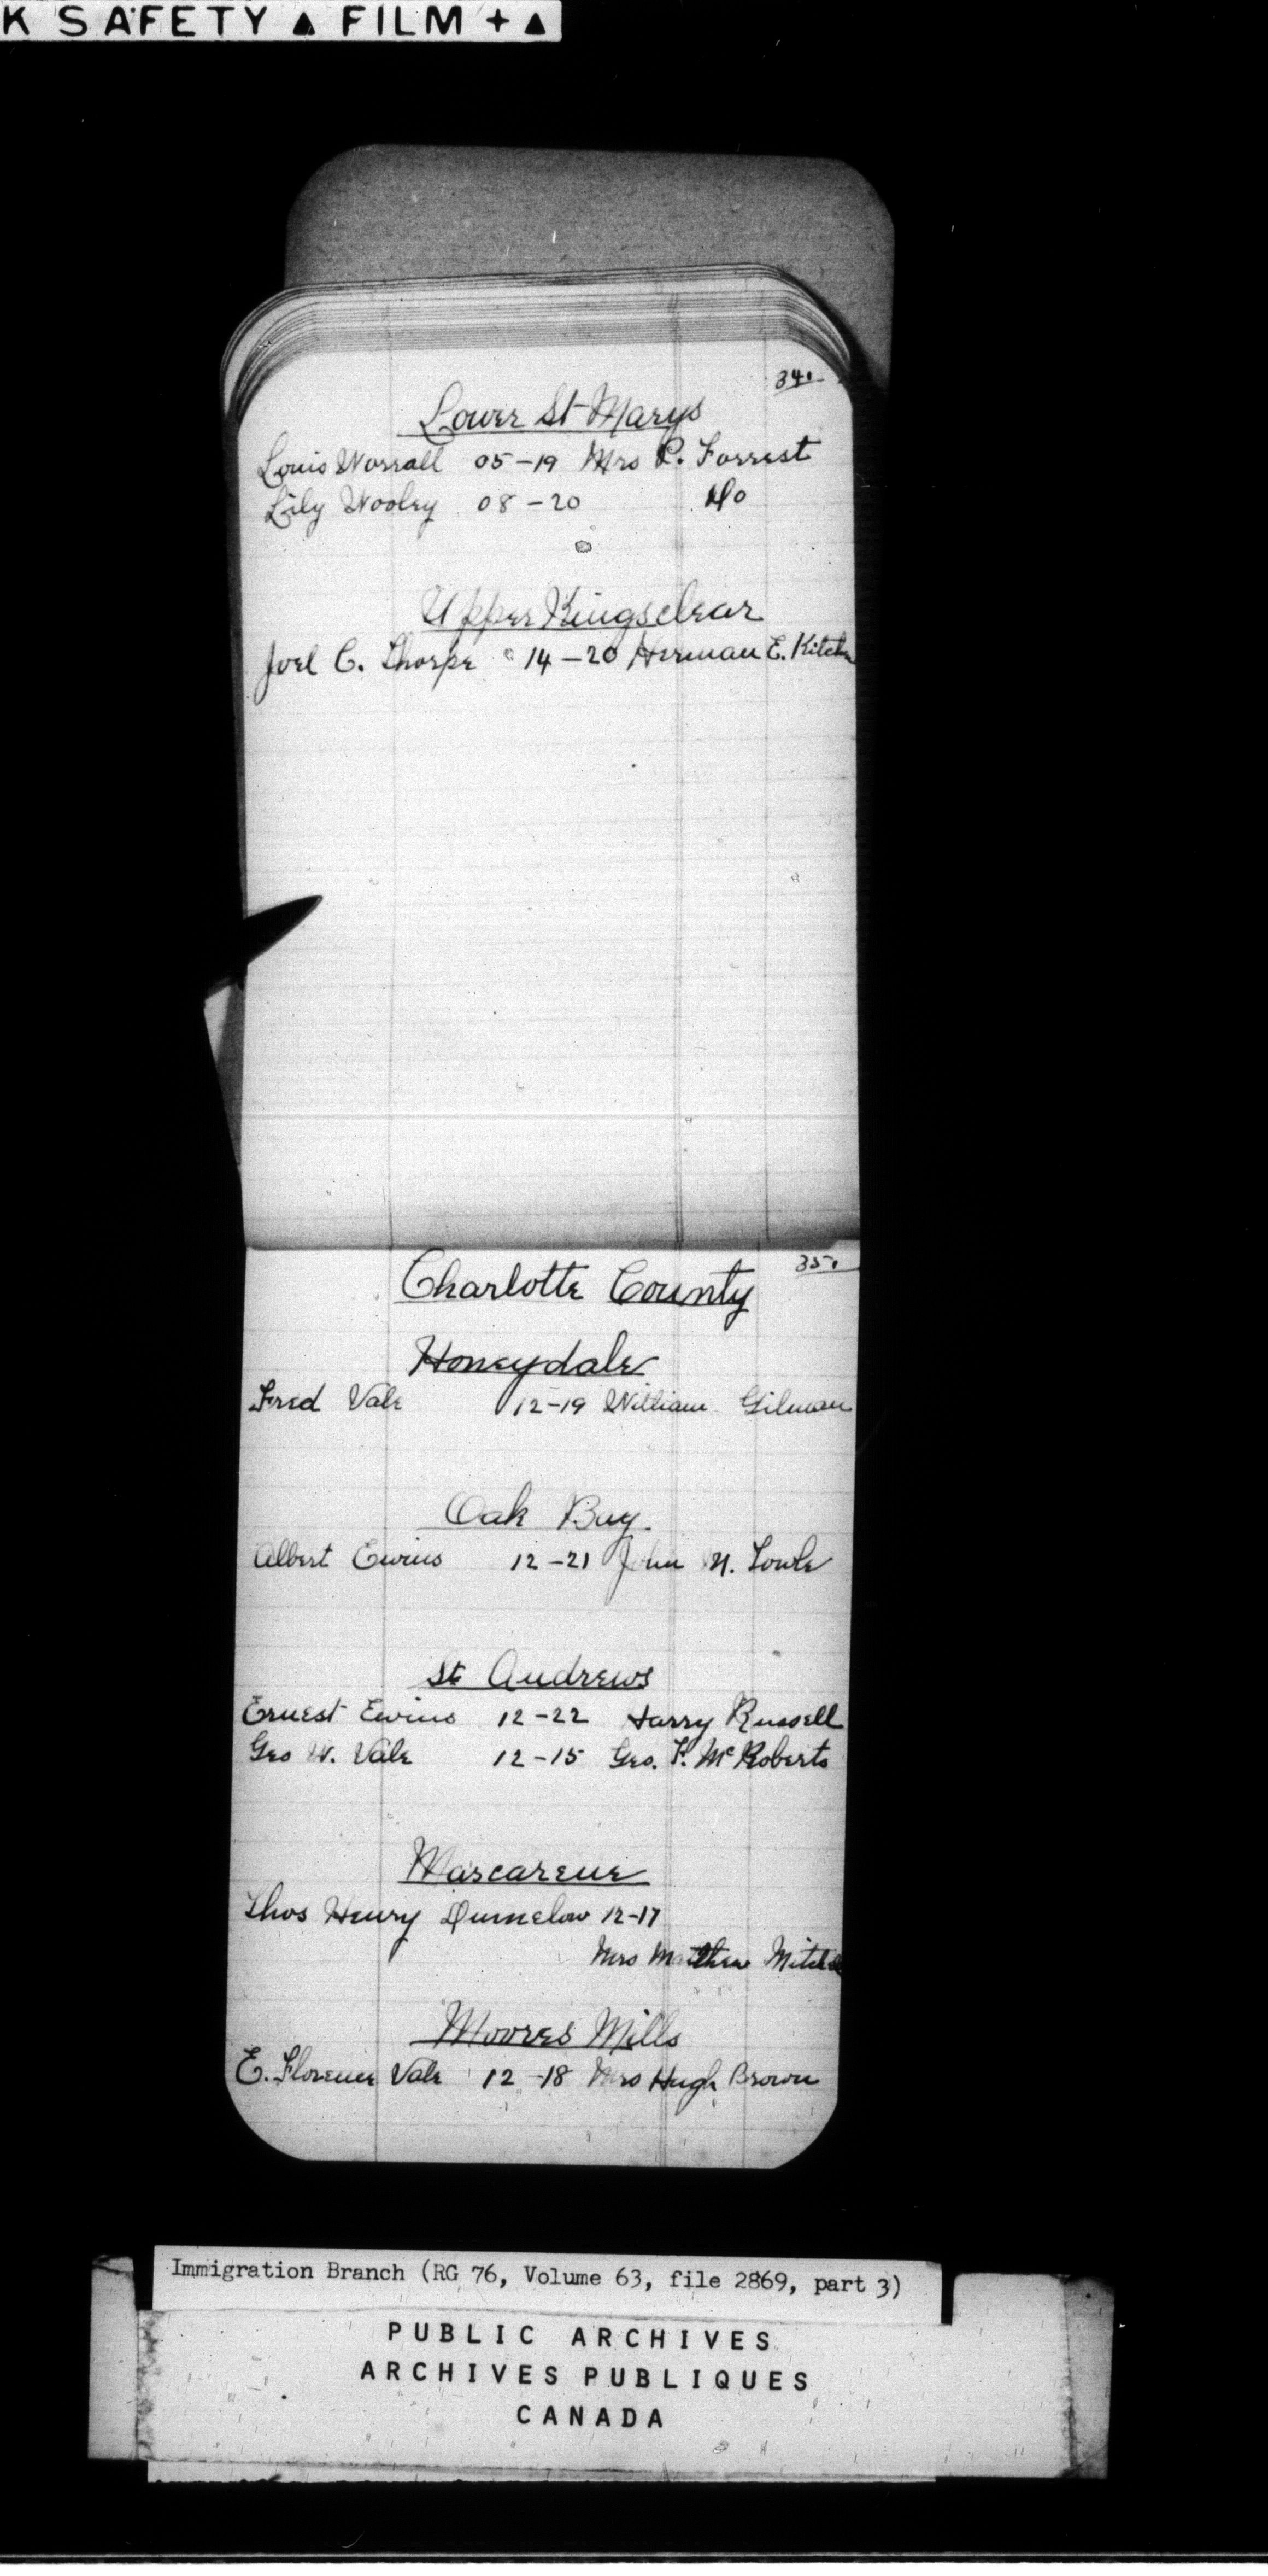 K SAFETY ▲ FILM + ▲
34.
Lower St Marys
Louis Worrall 05-19 Mrs P. Forrest
Lily Wooley 08-20 Do
Upper Kingsclear
Joel C. Thorpe 14-20 Herman E. Kitchen
35.
Charlotte County
Honeydale
Fred Vale 12-19 William Gilman
Oak Bay
Albert Ewins 12-21 John N.
St Andrews
Ernest Ewins 12-22 Harry Russell
Geo W. Vale 12-15 Geo. F. McRoberts
Mascarene
Thos Henry Dumelow 12-17
Mrs Matthew Mitchell
Moores Mills
E. Florence Vale 12-18 Mrs Hugh Brown
Immigration Branch (RG 76, Volume 63, file 2869, part 3)
PUBLIC ARCHIVES
ARCHIVES PUBLIQUES
CANADA